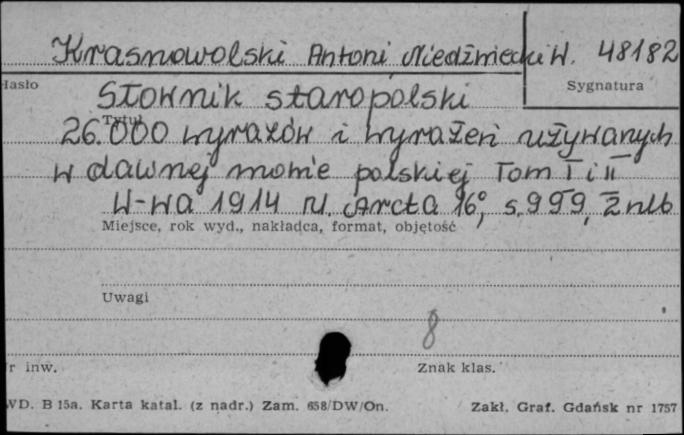 Krasnowolski Antoni, Niedźwiecki W. 48182
Hasło
Sygnatura
Słownik staropolski
Tytuł
26.000 wyrazów i wyrażeń używanych
w dawnej mowie polskiej Tom I i II
W-wa 1914 M. Arcta 16°, s. 959, 2 nlb
Miejsce, rok wyd., nakładca, format, objętość
Uwagi
8
r inw.
Znak klas.
WD. B 15a. Karta katal. (z nadr.) Zam. 658/DW/On.
Zakł. Graf. Gdańsk nr 1757